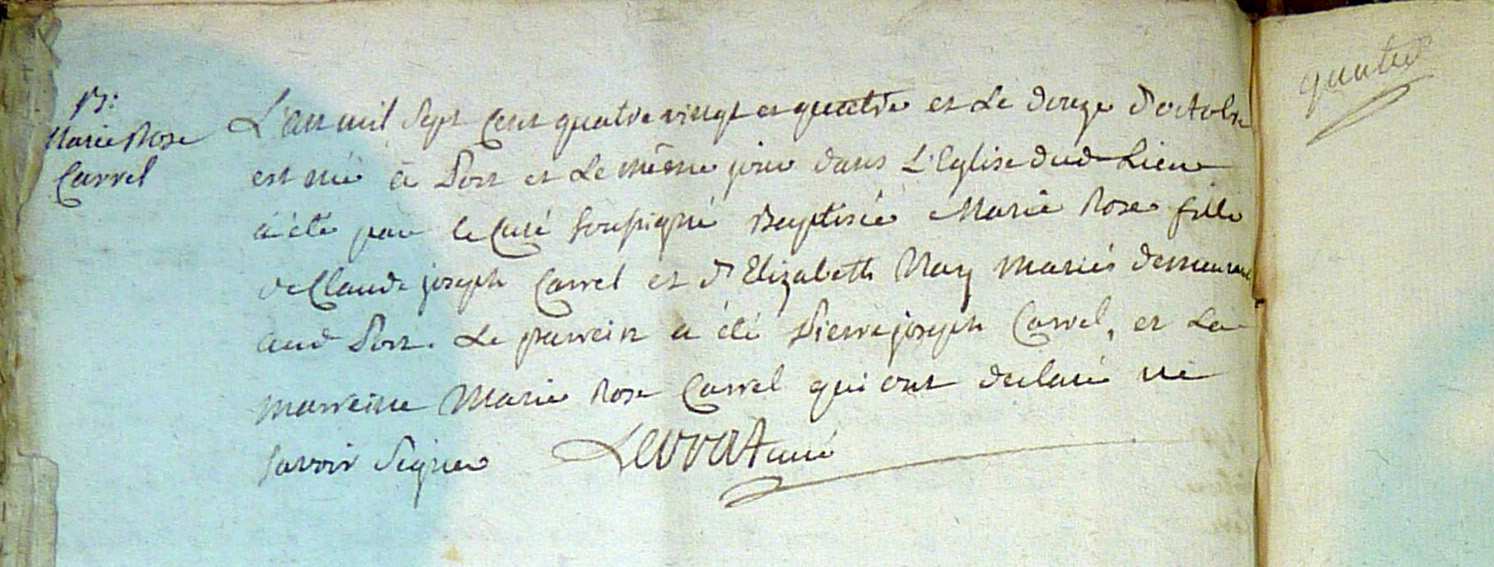 B:
Marie Rose
Carrel
L'an mil Sept Cent quatre vingt et quatre et Le douze D'octobre
est née à Port et Le même jour dans L'Eglise dud Lieu
a été par le Curé soussigné Baptisée Marie Rose fille
de Claude joseph Carrel et d'Elizabeth Nay mariés demeurant
aud Port. Le parrein a été Pierre joseph Carrel, et La
marreine Marie Rose Carrel qui ont declaré ne
savoir Signer Levrat curé
quatre